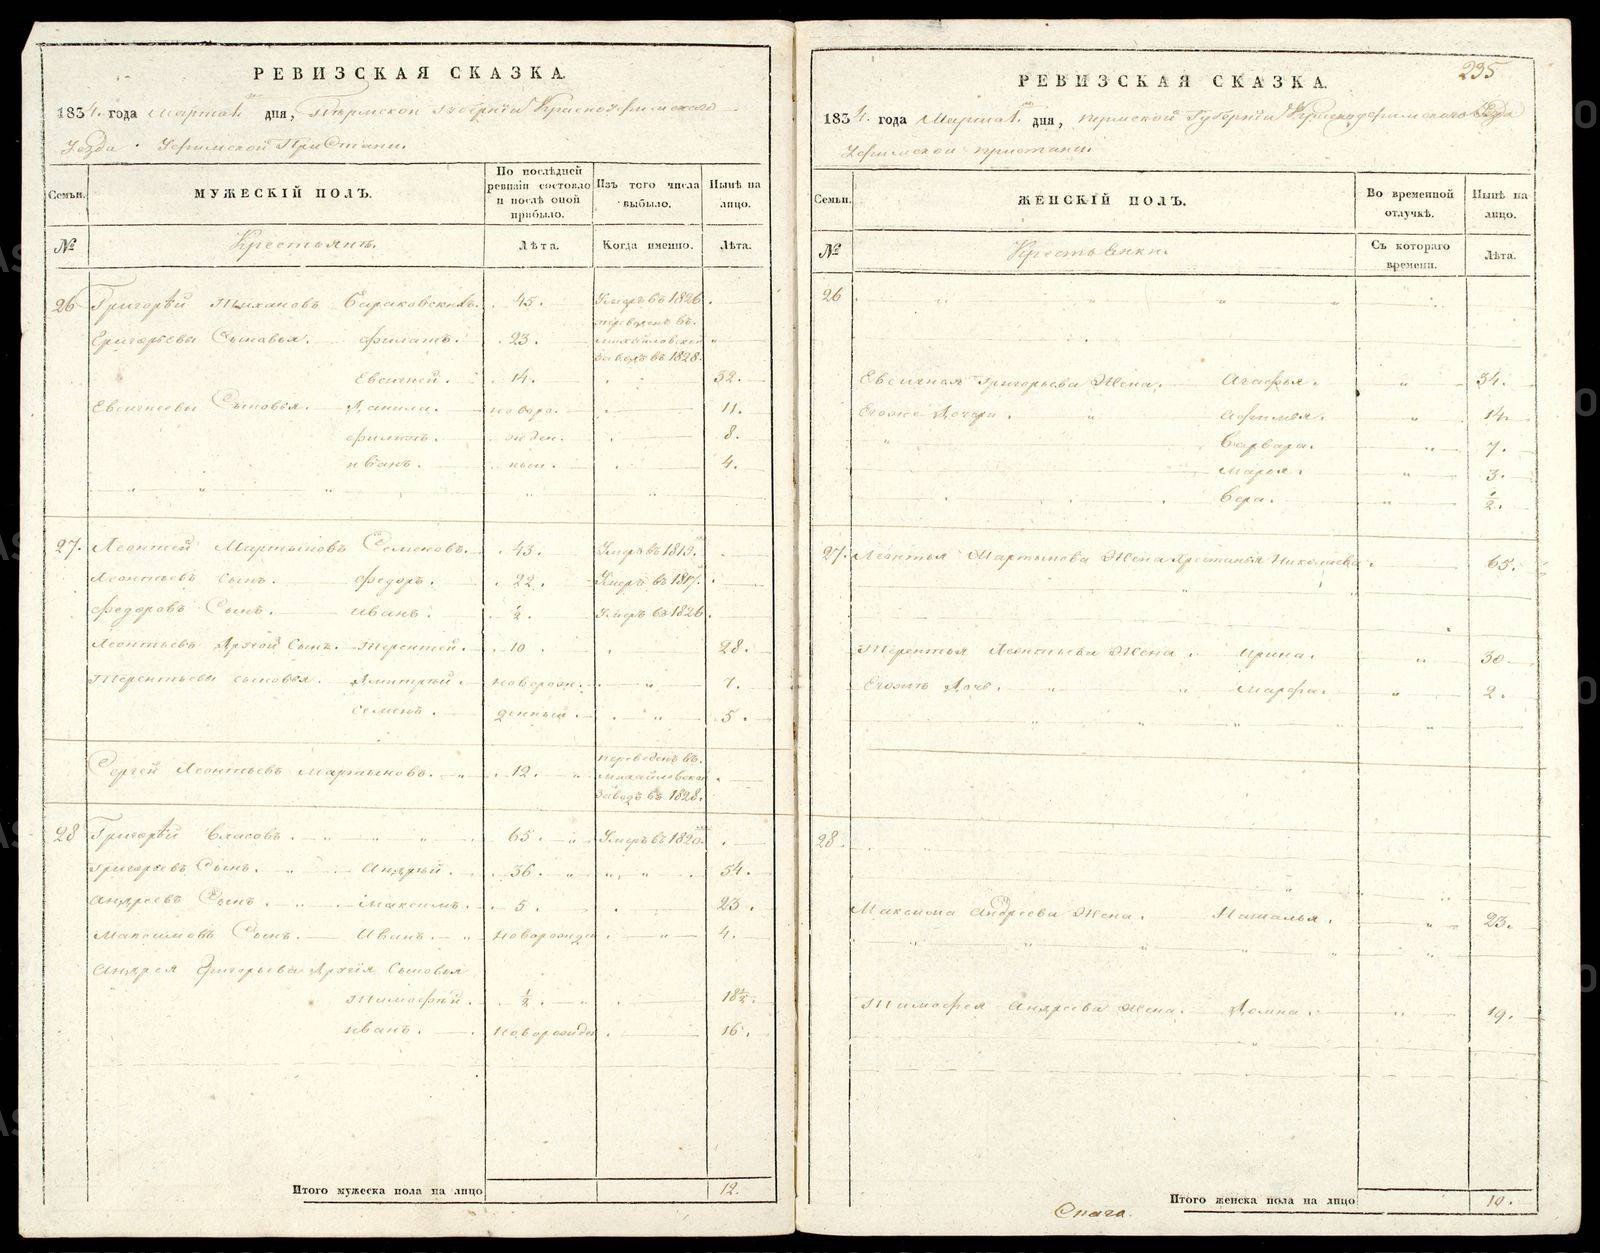 РЕВИЗСКАЯ СКАЗКА.
1834. года Марта 1 дня, Пермской Губернїи Красноуфимского
Уезда. Уфимской Пристани.
Семьи.
МУЖЕСКІЙ ПОЛЪ.
По послѣдней ревизіи состояло и послѣ оной прибыло.
Изъ того числа выбыло.
Нынѣ на лицо.
№
Крестьянъ.
Лѣта.
Когда именно.
Лѣта.
26 Григорѣй Тихановъ 45. Умеръ въ 1826
Григорьевы Сыновья. Филатъ. 23. переведенъ въ Михайловской завотъ въ 1828.
Евсигней. 14. 32.
Евсигнеевы Сыновья. Данила. новоро- 11.
Филипъ. жден- 8.
Иванъ. ныи. 4.
27. Леонтей Мартыновъ Семеновъ. 43. Умеръ въ 1813.
Леонтьевъ сынъ. Федоръ. 22. Умеръ въ 1817.
Федоровъ Сынъ. Иванъ. ½. Умеръ въ 1826
Леонтьевъ Другой Сынъ. Терентей. 10 28.
Терентьевы сыновья. Дмитрей. новорож- 7.
Семенъ. денныи. 5.
Сергей Леонтьевъ Мартыновъ. 12. переведенъ въ Михайловской Заводъ въ 1828.
28 Григорѣй Власовъ. 65. Умеръ въ 1820.
Григорьевъ Сынъ. Андрей. 36. 54.
Андреевъ Сынъ. Максимъ. 5. 23.
Максимовъ Сынъ. Иванъ. Новорожден 4.
Андрея Григорьева Другїя Сыновья
Тимофей. ½. 18½.
Иванъ. Новорожден 16.
Итого мужеска пола на лицо 12.
235
РЕВИЗСКАЯ СКАЗКА.
1834. года Марта 1 дня, Пермской Губернїи Красноуфимского Уезда
Уфимской пристани.
Семьи.
ЖЕНСКІЙ ПОЛЪ.
Во временной отлучкѣ.
Нынѣ на лицо.
№
Крестьянки.
Съ котораго времени.
Лѣта.
26
Евсигнея Григорьева Жена. Агафья. 34.
Егоже Дочери. Афимья. 14.
Варвара. 7.
Марья. 3.
Вера. ½.
27. Леонтья Мартынова Жена Николаева 65.
Терентья Леонтьева Жена. Ирина. 30
Егожъ Дочь. Марфа. 2.
28.
Максима Андреева Жена. Наталья. 23.
Тимофея Андреева Жена. Домна. 19.
Итого женска пола на лицо 10.